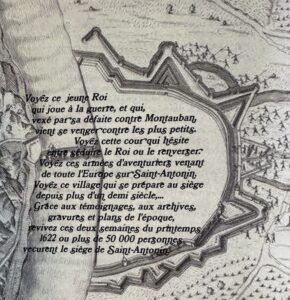 Voyez ce jeune Roi
qui joue à la guerre, et qui,
vexé par sa défaite contre Montauban,
vient se venger contre les plus petits.
Voyez cette cour qui hésite
entre séduire le Roi ou le renverser.
Voyez ces armées d'aventuriers venant
de toute l'Europe sur Saint-Antonin.
Voyez ce village qui se prépare au siège
depuis plus d'un demi siècle,...
Grâce aux témoignages, aux archives,
gravures et plans de l'époque,
revivez ces deux semaines du printemps
1622 ou plus de 50 000 personnes
vécurent le siège de Saint-Antonin.